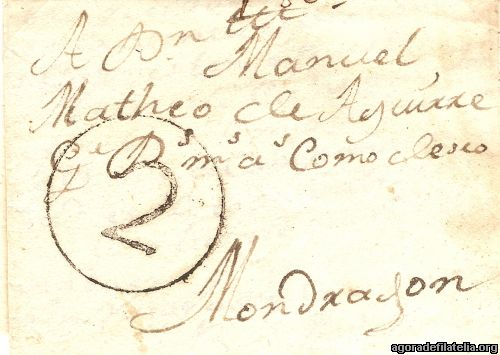 A Dn
Manuel,
Matheo de Aguirre
Ge Ds ms as Como deseo
2
Mondragon
agoradefilatelia.org